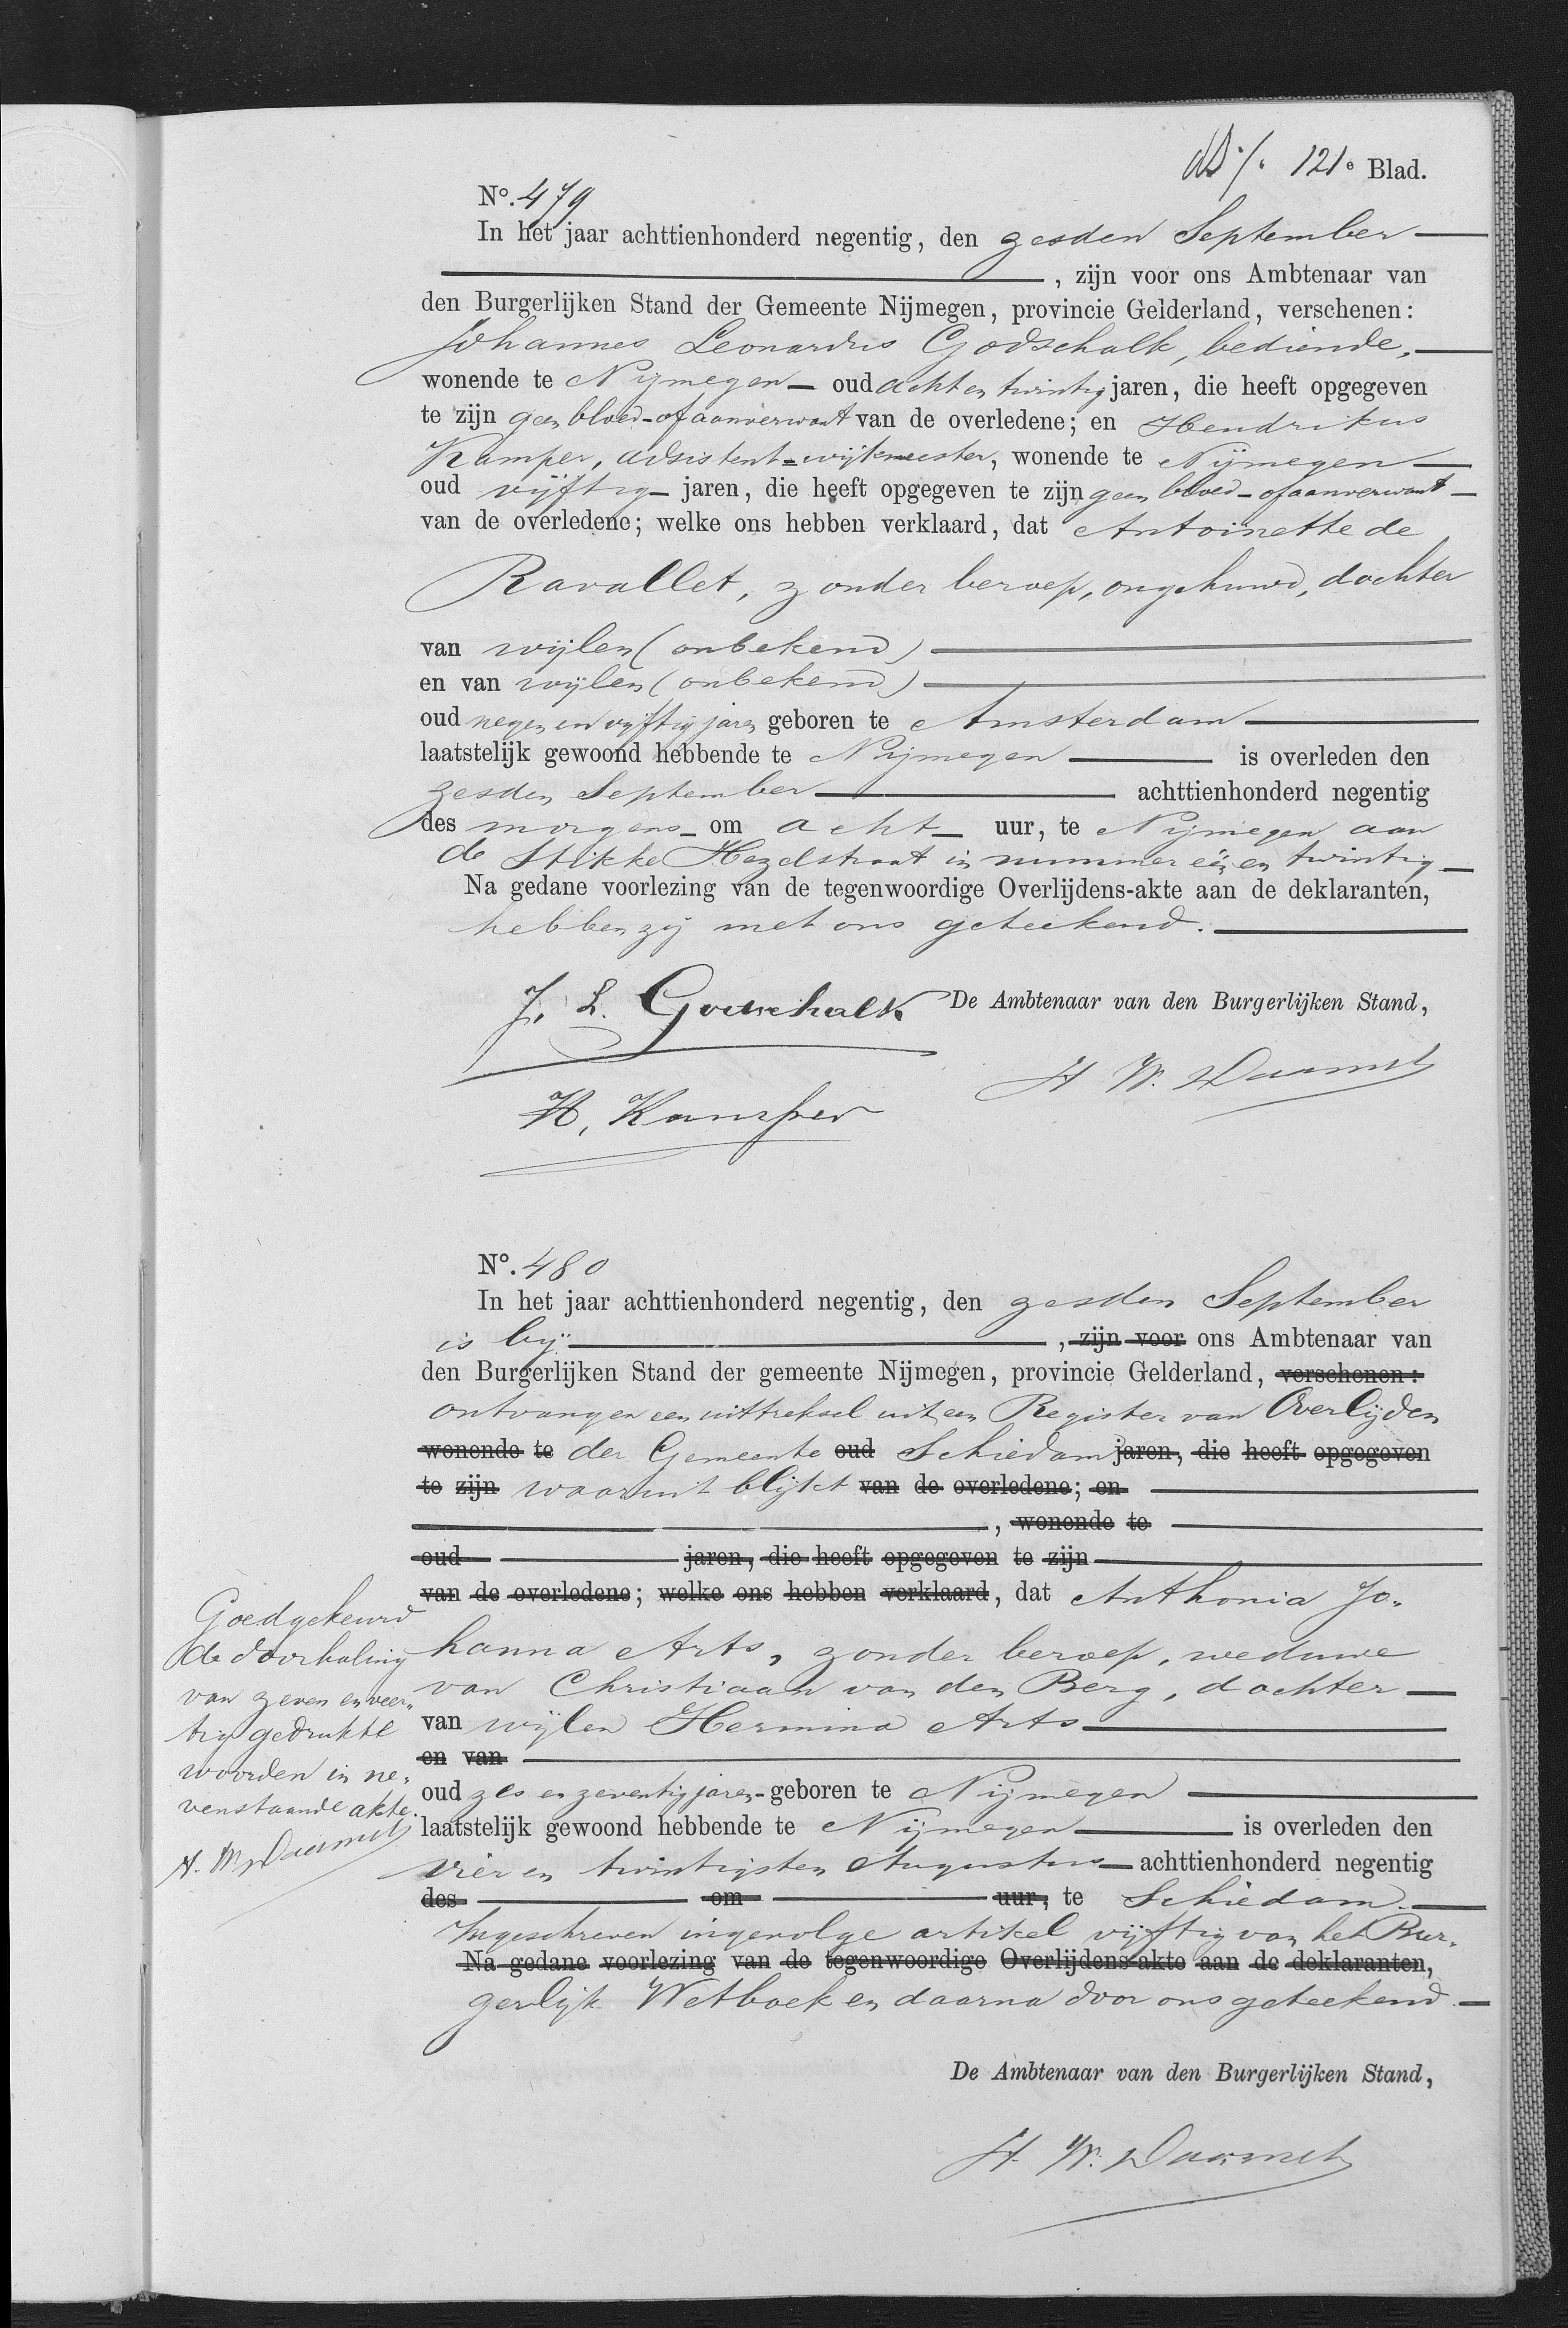 121e Blad.
No. 479
In het jaar achttienhonderd negentig, den zesden September
, zijn voor ons Ambtenaar van
den Burgerlijken Stand der Gemeente Nijmegen, provincie Gelderland, verschenen:
Johannes Leonardus Godschalk, bediende,
wonende te Nijmegen oud acht en twintig jaren, die heeft opgegeven
te zijn geen bloed- of aanverwant van de overledene; en Hendrikus
Kamper, adsistent-wijkmeester, wonende te Nijmegen
oud vijftig jaren, die heeft opgegeven te zijn geen bloed- of aanverwant
van de overledene; welke ons hebben verklaard, dat Antoinette de
Ravallet, zonder beroep, ongehuwd, dochter
van wijlen (onbekend)
en van wijlen (onbekend)
oud negen en vijftig jaren geboren te Amsterdam
laatstelijk gewoond hebbende te Nijmegen is overleden den
zesden September achttienhonderd negentig
des morgens om acht uur, te Nijmegen aan
de Stikke Hezelstraat in nummer één en twintig
Na gedane voorlezing van de tegenwoordige Overlijdens-akte aan de deklaranten,
hebben zij met ons geteekend.
J. L. Godschalk De Ambtenaar van den Burgerlijken Stand,
H. Kamper
No. 480
In het jaar achttienhonderd negentig, den zesden September
is bij , zijn voor ons Ambtenaar van
den Burgerlijken Stand der gemeente Nijmegen, provincie Gelderland, verschenen:
ontvangen een uittreksel uit een Register van Overlijden
wonende te der Gemeente oud Schiedam jaren, die heeft opgegeven
te zijn waaruit blijkt van de overledene; en
, wonende te
oud jaren, die heeft opgegeven te zijn
van de overledene; welke ons hebben verklaard, dat Anthonia Jo-
hanna Arts, zonder beroep, weduwe
van Christiaan van den Berg, dochter
van wijlen Hermina Arts
en van
oud zes en zeventig jaren geboren te Nijmegen
laatstelijk gewoond hebbende te Nijmegen is overleden den
vier en twintigsten Augustus achttienhonderd negentig
des om uur, te Schiedam.
Ingeschreven ingevolge artikel vijftig van het Bur-
Na gedane voorlezing van de tegenwoordige Overlijdens-akte aan de deklaranten,
gerlijk Wetboek en daarna door ons geteekend.
De Ambtenaar van den Burgerlijken Stand,
Goedgekeurd
de doorhaling
van zeven en veer-
tig gedrukte
woorden in ne-
venstaande akte.